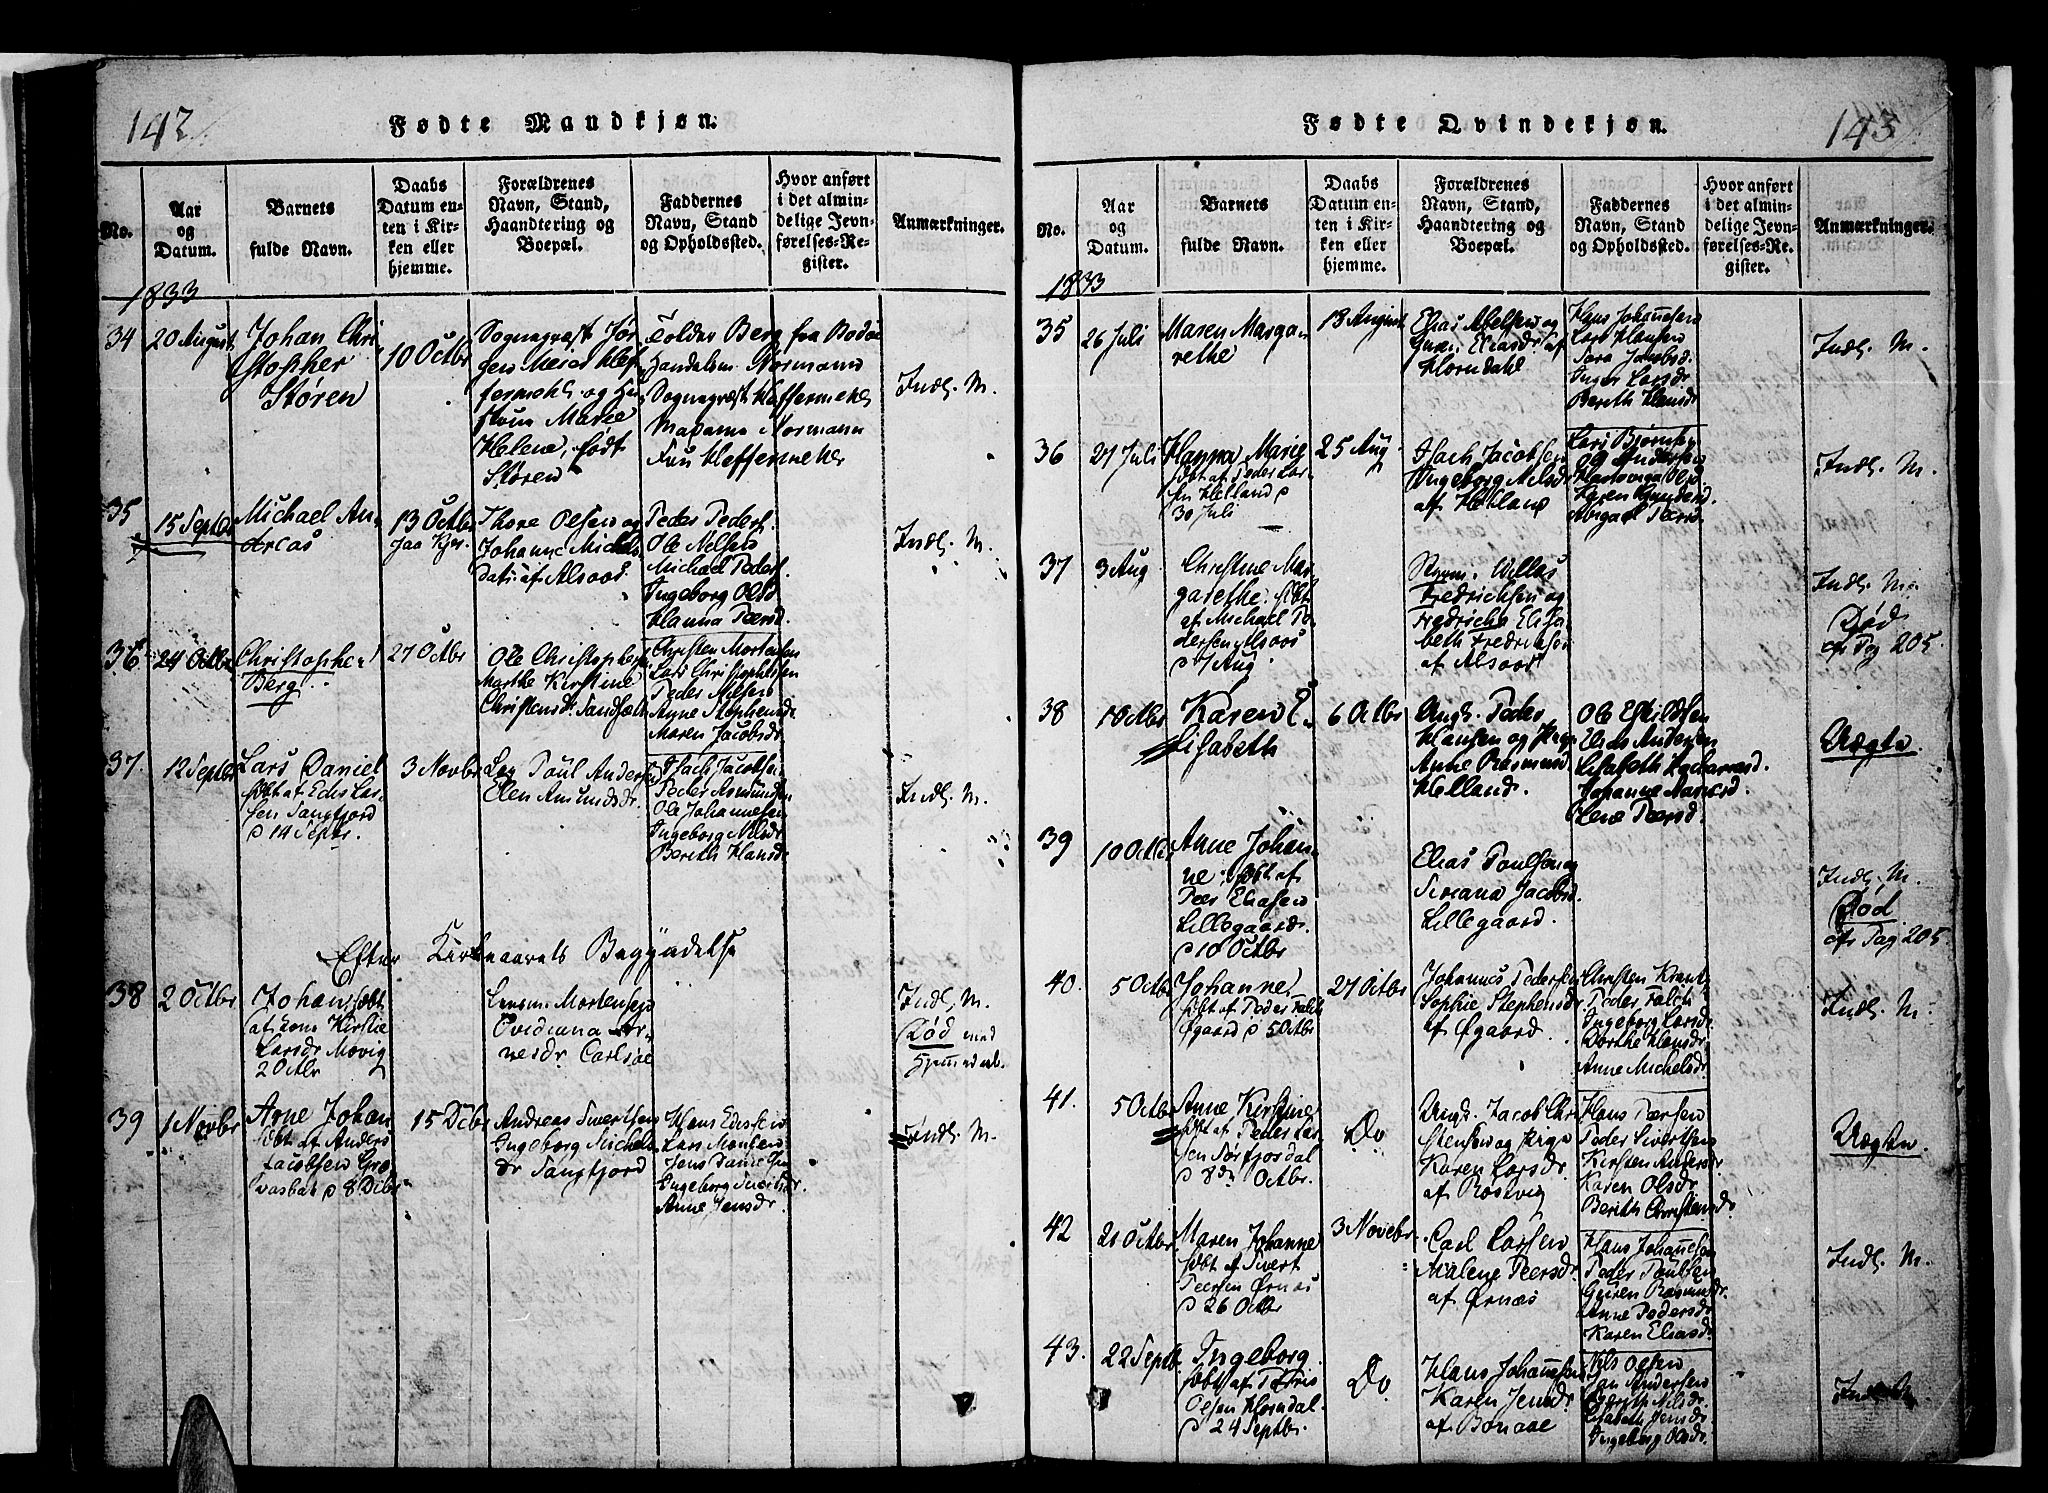 142
Fødte Mandkjøn.
No.
Aar
og
Datum.
Barnets
fulde Navn.
Daabs
Datum en-
ten i Kir-
ken eller
hjemme.
Forældrenes
Navn, Stand,
Haandtering og
Boepæl.
Faddernes
Navn, Stand
og Opholdsted.
Hvor anført
i det almin-
delige Jevn-
førelses-Re-
gister.
Anmærkninger.
1833
34
20 August
Johan Chri
stopher
Støren
10 Octbr
Sognepræst Jør
gen Meier Hef
fermehl og Hu
strue Marie
Helene, født
Støren
Tolder Berg fra Bodøe
Handelsm. Normann
Sognepræst Heffermehl
Madame Normann
Fru Heffermehl
Indl. M.
35
15 Septbr
Michael An
dreas
13 Octbr
Thore Olsen og
Johanne Michels
datr af Alsoos
Peder Peders.
Ole Nelsen
Michael Peders.
Ingeborg Olsd
Hanna Peersd.
Indl. M.
36
24 Octbr
Christopher
Berg
27 Octbr
Ole Christophersen
Marthe Kirstine
Christensdr
Christen Mortensen
Lars Christophersen
Peder Nelsen
Anne Stephensdr
Maren Jacobsdr
37.
12 Septbr
Lars Daniel
døbt af Edis Lar-
sen Tangfjord
d 14 Septbr.
3 Novbr
Paul Andersen
Elen Amundsdr.
Isach Jacobsen
Peder Asmundsen
Ole Johannesen
Ingeborg Nilsdr
Berith Hansdr
Indl. M.
Efter Kirkeaarets Begyndelse
38
2 Octbr
Johan, døbt
af Kirstie
Larsdr Movig
2 Octbr
Lensm. Mortensen
Ovidiana Ar-
nesdr Carlsøe
Indl. M.
Død med
39
1 Novbr
Arne Johan
døbt af Anders
Jacobsen Gra-
vasbak d 8 Dcbr
15 Dcbr
Andreas Sivertsen
Ingeborg Michels
dr Tangfjord
Hans Edissen
Lars Monsen
Jens Daniel
Ingeborg Sivertsdr
Anne Jensdr.
Indl. M.
143
Fødte Qvindekjøn.
No.
Aar
og
Datum.
Barnets
fulde Navn.
Daabs
Datum en-
ten i Kir-
ken eller
hjemme.
Forældrenes
Navn, Stand,
Haandtering og
Boepæl.
Faddernes
Navn, Stand
og Opholdsted.
Hvor anført
i det almin-
delige Jevn-
førelses-Re-
gister.
Anmærkninger.
1833
35
26 Juli
Maren Marga
rethe
18 August
Elias Abelsen og
Guru Eliasdr af
Horndahl
Hans Johannesen
Lars Hansen
Sara Jacobsd.
Inger Larsdr
Berith Hansdr
Indl. M.
36
27 Juli
Hanna Marie
døbt af Peder Lar-
sen Helland d
30 Juli
25 Aug
Isach Jacobsen
Ingeborg Nilsdr
af Helland
Lars Bjørnsen
Ole Andersen
Karen
Abigael Peersd.
Indl. M.
37
3 Aug
Christine Mar
garethe døbt
af Michael Pe
dersen Alsoos
d 7 Aug
Willas
Fredrichsen og
Fredricha Elisa
beth Fredrichsdr
af Alsoos
Indl. M.
Død
cfr Pag 205.
38
1 Octbr
Karen E-
lisabeth
6 Octbr
Ungk. Peder
Hansen og Pige
Anne Rasmusd
Helland.
Ole Eskildsen
Elias Andersen
Lisabeth Zachariasd.
Johanne
Elene Peersd.
Uægte.
39
10 Octbr
Anne Johan-
ne, døbt af
Peer Eliasen
Lillegaard
d 10 Octbr
Elias Poulsen og
Siriana Jacobsd.
Lillegaard.
Indl. M.
Død
cfr Pag 205.
40.
5 Octbr
Johanne,
døbt af Peder Falch
Øgaard d 5 Octbr
27 Octbr
Johannes Pedersen
Sophie Stephensdr
af Øgaard.
Christen Krant
Peder Falch
Ingeborg Larsdr
Dorthe Hansdr
Anne Michelsdr
Indl. M.
41.
5 Octbr
Anne Kirstine
døbt af Peder Lar-
sen Sørfjordal
d 8de Octbr.
Do
Ungk. Jacob Chri
stensen og Pige
Karen Larsdr
af Røsvig
Hans Peersen
Peder Sivertsen
Kirsten Andersdr
Karen Olsdr
Berith Christensdr
Uægte.
42
21 Octbr
Maren Johanne
døbt af Sivert
Peersen Ørnæs
d 26 Octbr
3 Novebr
Carl Larsen
Malene Peersdr.
af Ørnæs
Hans Johannesen
Peder Poulsen
Guren Rasmusdr.
Anne Pedersdr
Karen Eliasdr
Indl. M.
43.
22 Septb.
Ingeborg
døbt af Petrus
Olsen Horndal
d 24 Septbr.
Do
Hans Johannesen
Karen Jensdr
af Bonaae
Nils Olsen
Jan Andersen
Lisabeth Jensdr
Ingeborg Olsdr
Indl. M.